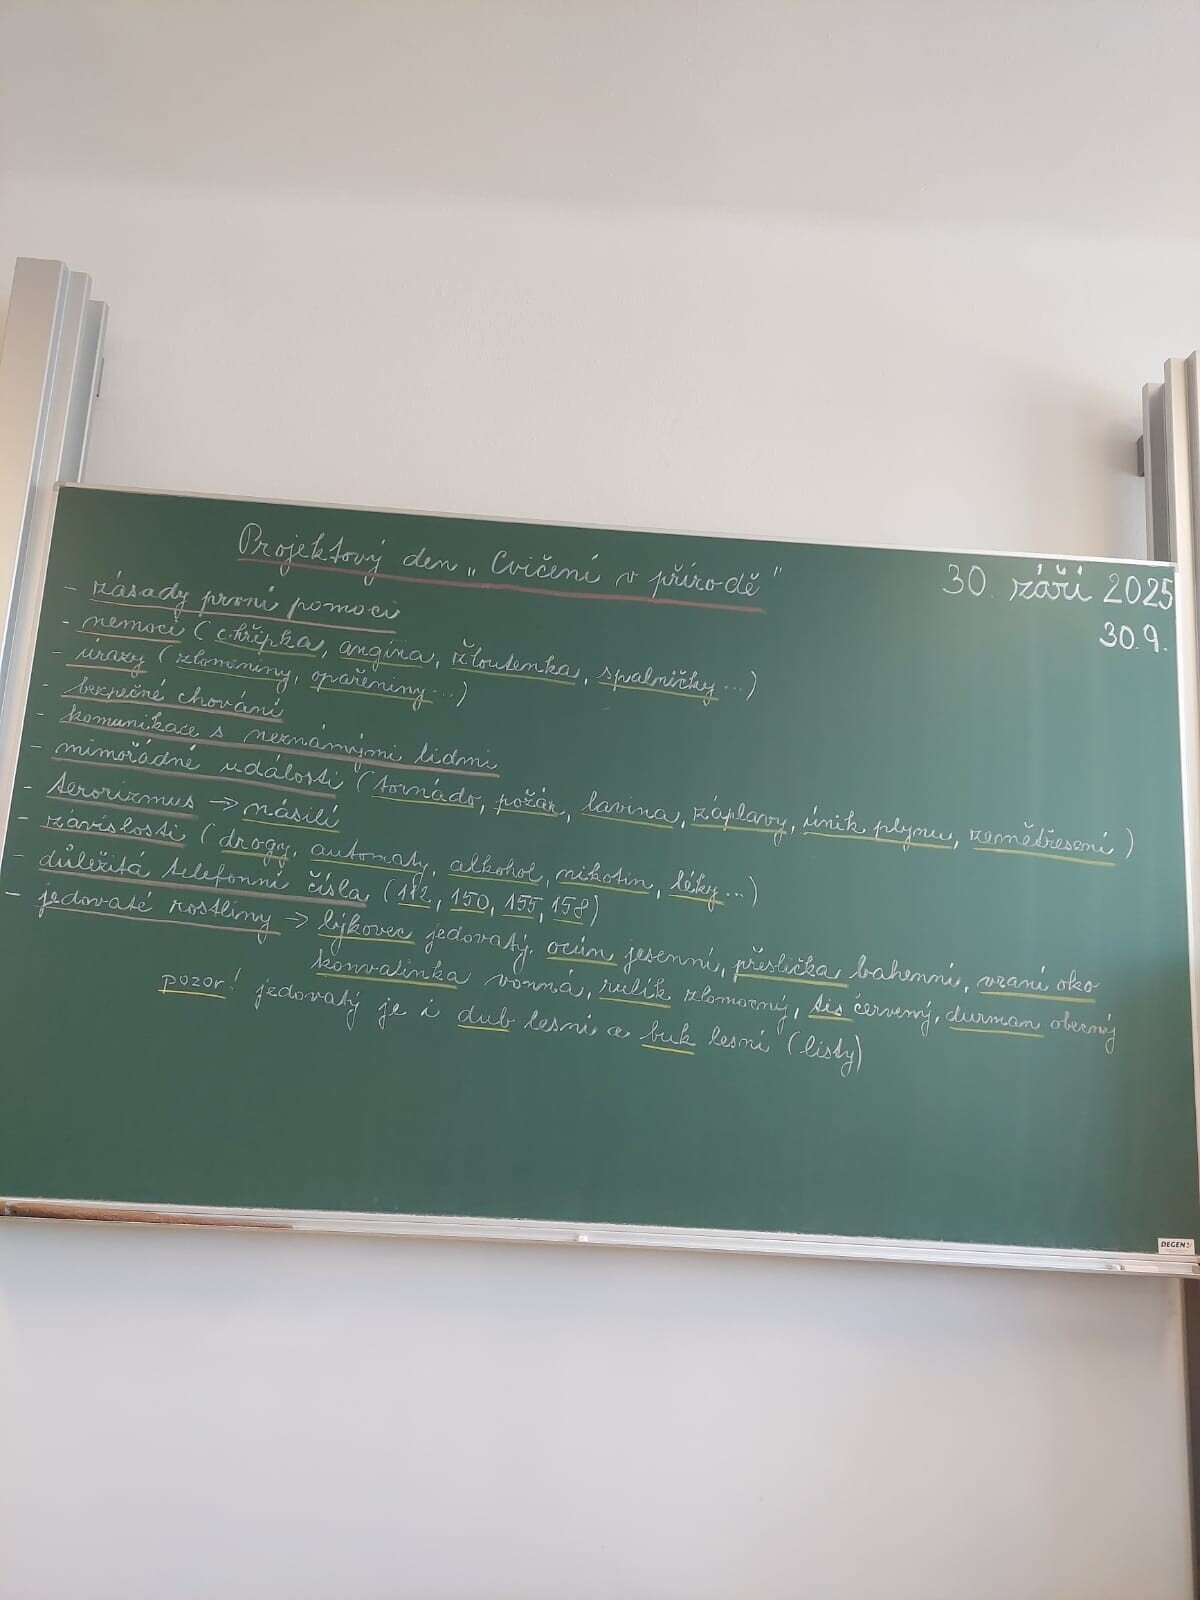 Projektový den „Cvičení v přírodě"
30. září 2025
30.9.
- zásady první pomoci
- nemoci (chřipka, angína, žloutenka, spalničky...)
- úrazy (zlomeniny, opařeniny...)
- bezpečné chování
- komunikace s neznámými lidmi
- mimořádné události (tornádo, požár, lavina, záplavy, únik plynu, zemětřesení)
- terorizmus → násilí
- závislosti (drogy, automaty, alkohol, nikotin, léky...)
- důležitá telefonní čísla (112, 150, 155, 158)
- jedovaté rostliny → lýkovec jedovatý, ocún jesenní, přeslička bahenní, vraní oko
konvalinka vonná, rulík zlomocný, tis červený, durman obecný
pozor! jedovatý je i dub lesní a buk lesní (listy)
DEGEN